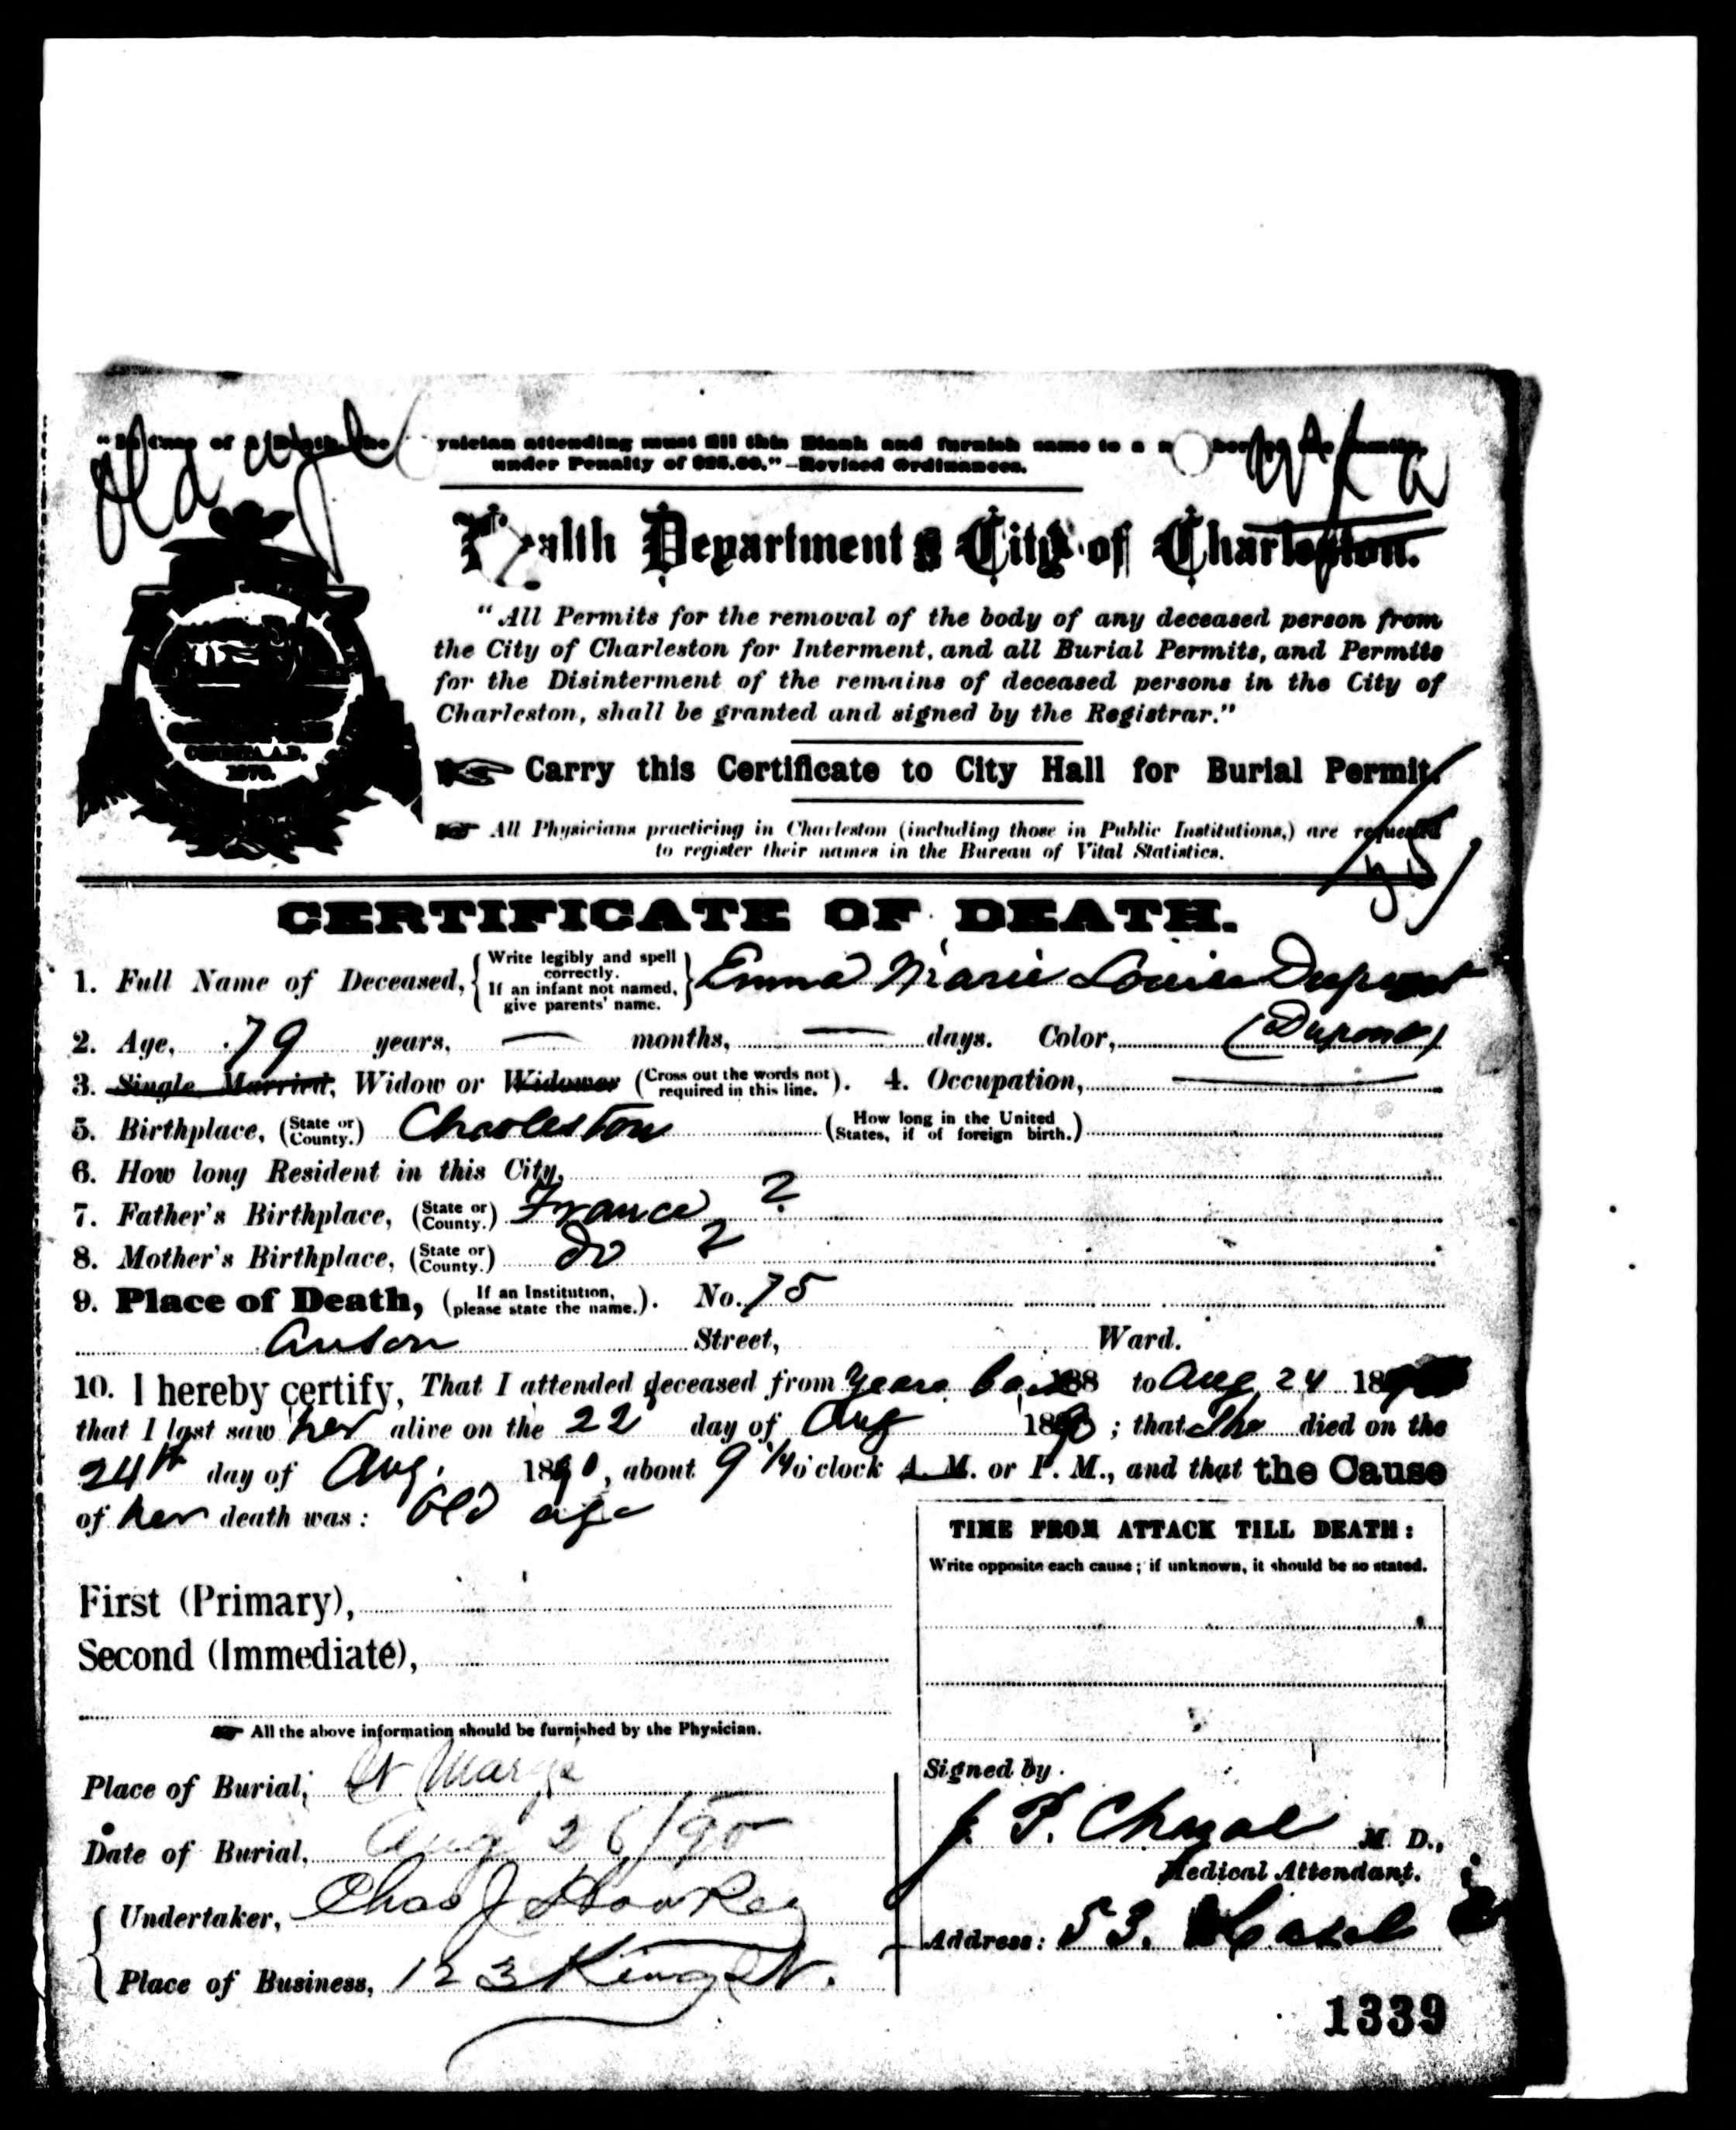 Old age
ysician attending must fill this Blank and furnish same to a
under Penalty of $25.00."—Revised Ordinances.
Health Department City of Charleston.
"All Permits for the removal of the body of any deceased person from
the City of Charleston for Interment, and all Burial Permits, and Permits
for the Disinterment of the remains of deceased persons in the City of
Charleston, shall be granted and signed by the Registrar."
Carry this Certificate to City Hall for Burial Permit.
All Physicians practicing in Charleston (including those in Public Institutions,) are requested
to register their names in the Bureau of Vital Statistics.
CERTIFICATE OF DEATH.
1. Full Name of Deceased, { Write legibly and spell correctly. If an infant not named, give parents' name. } Emma Marie Louise Dupont
2. Age, 79 years, — months, — days. Color, (Dupont)
3. Single Married, Widow or Widower (Cross out the words not required in this line.). 4. Occupation, —
5. Birthplace, (State or County.) Charleston (How long in the United States, if of foreign birth.)
6. How long Resident in this City,
7. Father's Birthplace, (State or County.) France ?
8. Mother's Birthplace, (State or County.) do ?
9. Place of Death, (If an Institution, please state the name.). No. 75
Anson Street, Ward.
10. I hereby certify, That I attended deceased from years 188 to Aug 24 18
that I last saw her alive on the 22 day of Aug 1890; that she died on the
24th day of Aug. 1890, about 9 1/4 o'clock A. M. or P. M., and that the Cause
of her death was: Old age
TIME FROM ATTACK TILL DEATH:
Write opposite each cause; if unknown, it should be so stated.
First (Primary),
Second (Immediate),
All the above information should be furnished by the Physician.
Place of Burial, St Marys
Date of Burial, Aug 26/90
Undertaker, Chas J
Place of Business, 123 King St.
Signed by
M. D.,
Medical Attendant.
Address: 53. Hasel
1339